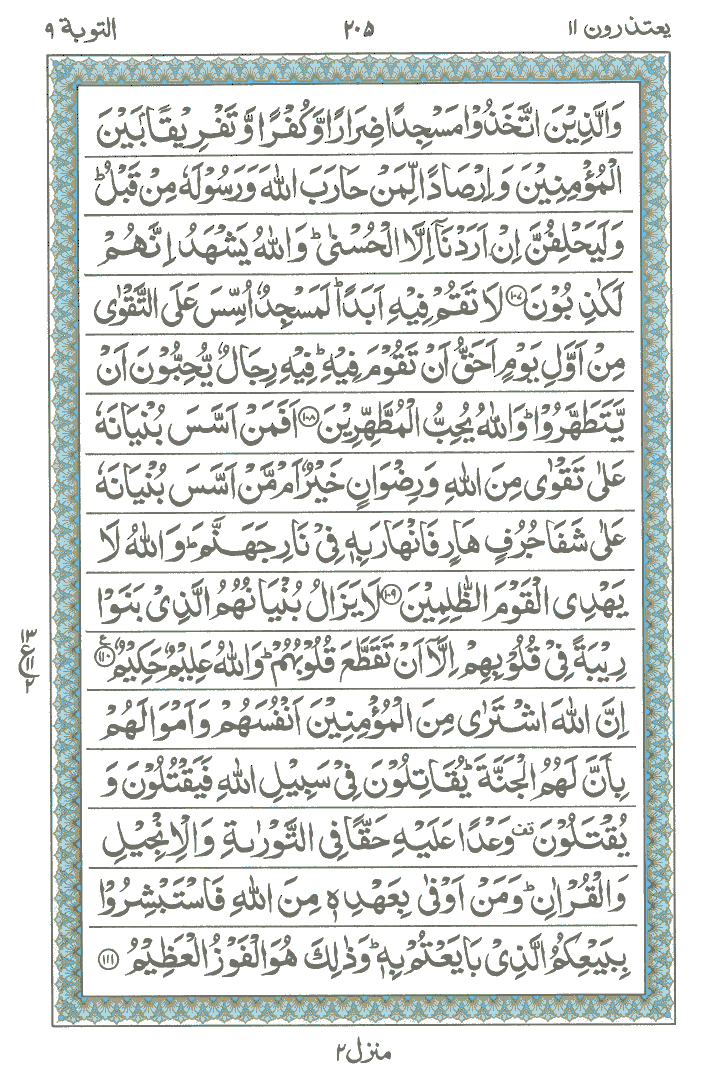 یعتذرون ۱۱
۲۰۵
التوبة ۹
وَالَّذِیْنَ اتَّخَذُوْا مَسْجِدًا ضِرَارًا وَّكُفْرًا وَّتَفْرِیْقًۢا بَیْنَ
الْمُؤْمِنِیْنَ وَاِرْصَادًا لِّمَنْ حَارَبَ اللّٰهَ وَرَسُوْلَهٗ مِنْ قَبْلُؕ
وَلَیَحْلِفُنَّ اِنْ اَرَدْنَاۤ اِلَّا الْحُسْنٰیؕ وَاللّٰهُ یَشْهَدُ اِنَّهُمْ
لَكٰذِبُوْنَ ۱۰۷ لَا تَقُمْ فِیْهِ اَبَدًاؕ لَمَسْجِدٌ اُسِّسَ عَلَی التَّقْوٰی
مِنْ اَوَّلِ یَوْمٍ اَحَقُّ اَنْ تَقُوْمَ فِیْهِؕ فِیْهِ رِجَالٌ یُّحِبُّوْنَ اَنْ
یَّتَطَهَّرُوْاؕ وَاللّٰهُ یُحِبُّ الْمُطَّهِّرِیْنَ ۱۰۸ اَفَمَنْ اَسَّسَ بُنْیَانَهٗ
عَلٰی تَقْوٰی مِنَ اللّٰهِ وَرِضْوَانٍ خَیْرٌ اَمْ مَّنْ اَسَّسَ بُنْیَانَهٗ
عَلٰی شَفَا جُرُفٍ هَارٍ فَانْهَارَ بِهٖ فِیْ نَارِ جَهَنَّمَؕ وَاللّٰهُ لَا
یَهْدِی الْقَوْمَ الظّٰلِمِیْنَ ۱۰۹ لَا یَزَالُ بُنْیَانُهُمُ الَّذِیْ بَنَوْا
رِیْبَةً فِیْ قُلُوْبِهِمْ اِلَّاۤ اَنْ تَقَطَّعَ قُلُوْبُهُمْؕ وَاللّٰهُ عَلِیْمٌ حَكِیْمٌ ع ۱۱۰
۱۳
ع
۱۱
۲
اِنَّ اللّٰهَ اشْتَرٰی مِنَ الْمُؤْمِنِیْنَ اَنْفُسَهُمْ وَاَمْوَالَهُمْ
بِاَنَّ لَهُمُ الْجَنَّةَؕ یُقَاتِلُوْنَ فِیْ سَبِیْلِ اللّٰهِ فَیَقْتُلُوْنَ وَ
یُقْتَلُوْنَ قف وَعْدًا عَلَیْهِ حَقًّا فِی التَّوْرٰىةِ وَالْاِنْجِیْلِ
وَالْقُرْاٰنِؕ وَمَنْ اَوْفٰی بِعَهْدِهٖ مِنَ اللّٰهِ فَاسْتَبْشِرُوْا
بِبَیْعِكُمُ الَّذِیْ بَایَعْتُمْ بِهٖؕ وَذٰلِكَ هُوَ الْفَوْزُ الْعَظِیْمُ ۱۱۱
منزل ۲